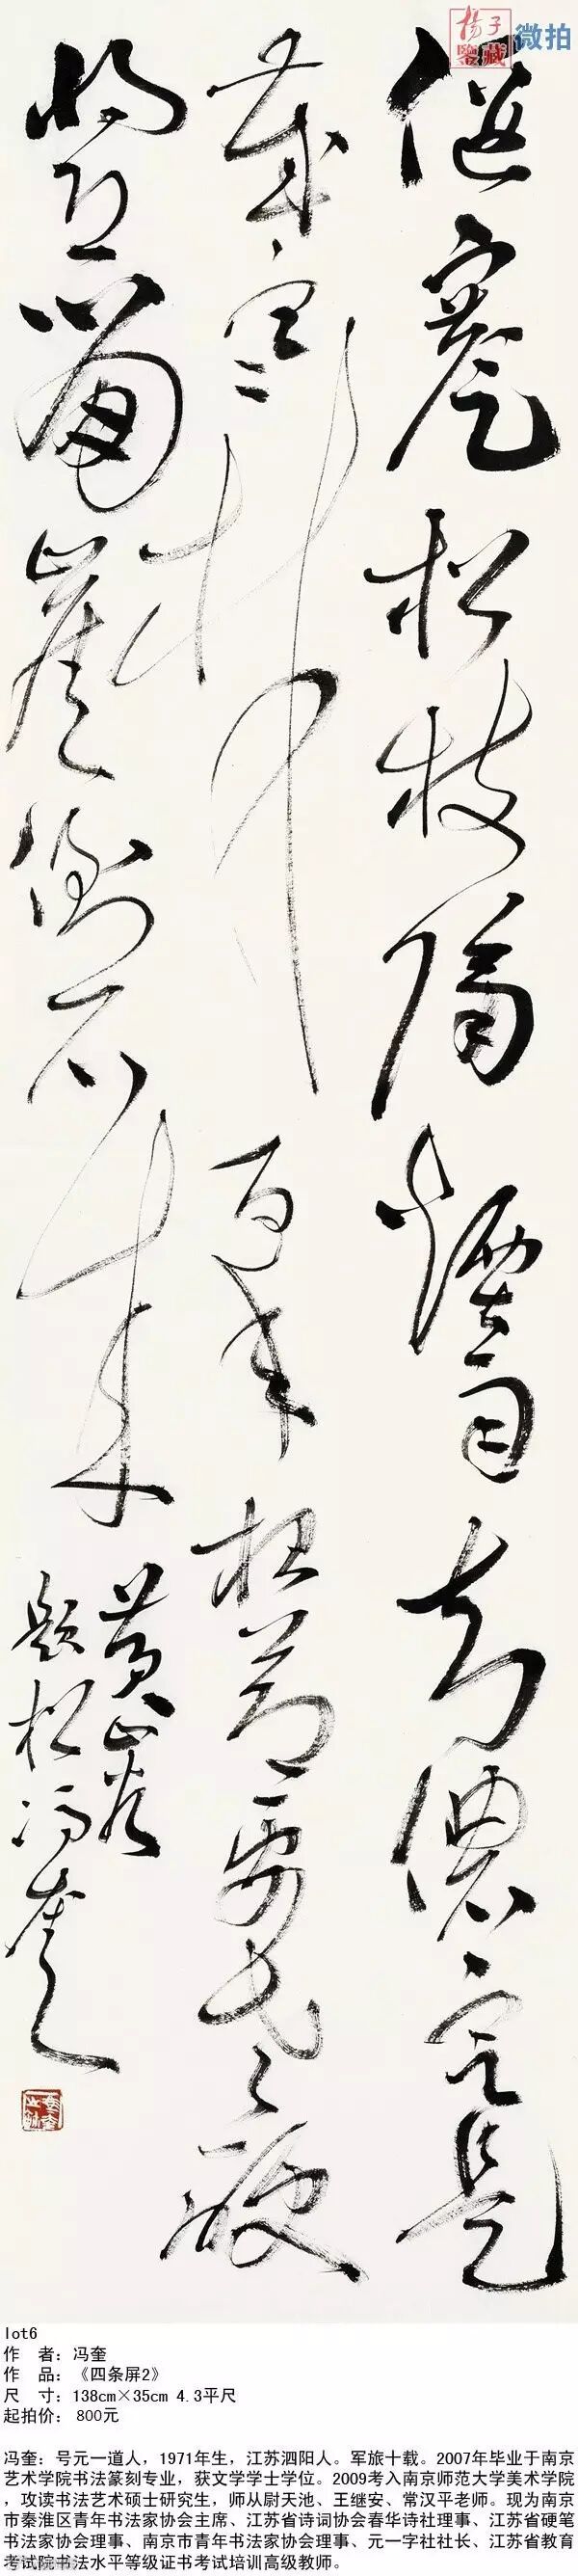 揚子
鑒藏
微拍
偃蹇松枝隔煙雨知儂定是
歲寒材百年根節要老硬
將恐崩崖倒石來
黄山谷
題松馮奎
lot6
作 者：冯奎
作 品：《四条屏2》
尺 寸：138cm×35cm 4.3平尺
起拍价： 800元
冯奎：号元一道人，1971年生，江苏泗阳人。军旅十载。2007年毕业于南京
艺术学院书法篆刻专业，获文学学士学位。2009考入南京师范大学美术学院
，攻读书法艺术硕士研究生，师从尉天池、王继安、常汉平老师。现为南京
市秦淮区青年书法家协会主席、江苏省诗词协会春华诗社理事、江苏省硬笔
书法家协会理事、南京市青年书法家协会理事、元一字社社长、江苏省教育
考试院书法水平等级证书考试培训高级教师。